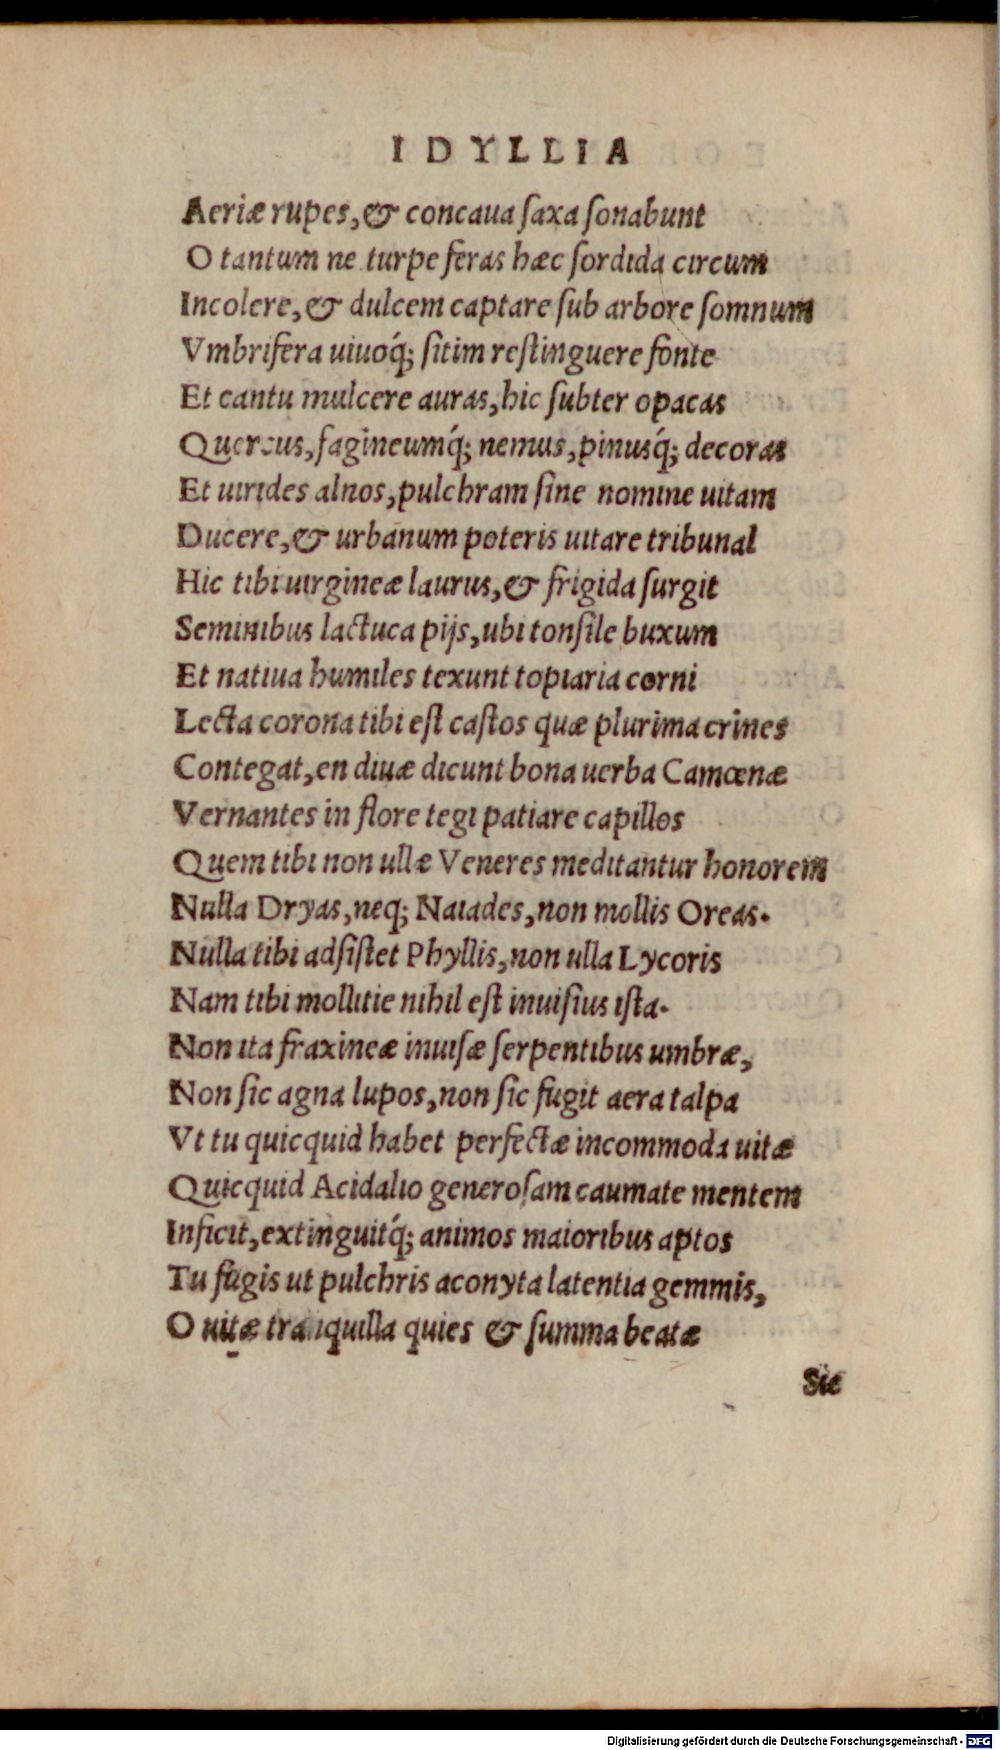 IDYLLIA
Aeriæ rupes, & concaua ſaxa ſonabunt
O tantum ne turpe feras hæc ſordida circum
Incolere, & dulcem captare ſub arbore ſomnum
Vmbrifera uiuoq́; ſitim reſtinguere fonte
Et cantu mulcere auras, hic ſubter opacas
Quercus, fagineumq́; nemus, pinusq́; decoras
Et uirides alnos, pulchram ſine nomine uitam
Ducere, & urbanum poteris uitare tribunal
Hic tibi uirgineæ laurus, & frigida ſurgit
Seminibus lactuca pijs, ubi tonſile buxum
Et natiua humiles texunt topiaria corni
Lecta corona tibi eſt caſtos quæ plurima crines
Contegat, en diuæ dicunt bona uerba Camœnæ
Vernantes in flore tegi patiare capillos
Quem tibi non ullæ Veneres meditantur honorem
Nulla Dryas, neq; Naiades, non mollis Oreas.
Nulla tibi adſiſtet Phyllis, non ulla Lycoris
Nam tibi mollitie nihil eſt inuiſius iſta.
Non ita fraxineæ inuiſæ ſerpentibus umbræ,
Non ſic agna lupos, non ſic fugit aera talpa
Vt tu quicquid habet perfectæ incommoda uitæ
Quicquid Acidalio generoſam caumate mentem
Inficit, extinguitq́; animos maioribus aptos
Tu fugis ut pulchris aconyta latentia gemmis,
O uitæ tranquilla quies & ſumma beatæ
Sic
Digitalisierung gefördert durch die Deutsche Forschungsgemeinschaft - DFG